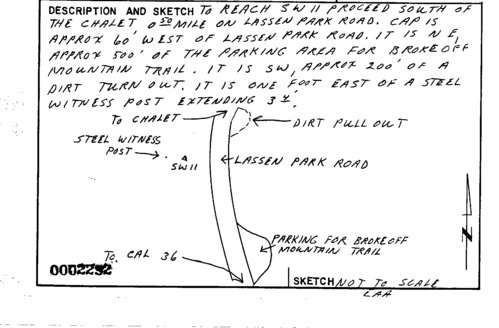 DESCRIPTION AND SKETCH TO REACH SW11 PROCEED SOUTH OF
THE CHALET 0.50 MILE ON LASSEN PARK ROAD. CAP IS
APPROX 60' WEST OF LASSEN PARK ROAD. IT IS NE,
APPROX 500' OF THE PARKING AREA FOR BROKEOFF
MOUNTAIN TRAIL. IT IS SW, APPROX 200' OF A
DIRT TURN OUT. IT IS ONE FOOT EAST OF A STEEL
WITNESS POST EXTENDING
TO CHALET
DIRT PULL OUT
STEEL WITNESS
POST
SW11
LASSEN PARK ROAD
N
PARKING FOR BROKEOFF
MOUNTAIN TRAIL
TO CAL 36
0002292
SKETCH NOT TO SCALE
LAA